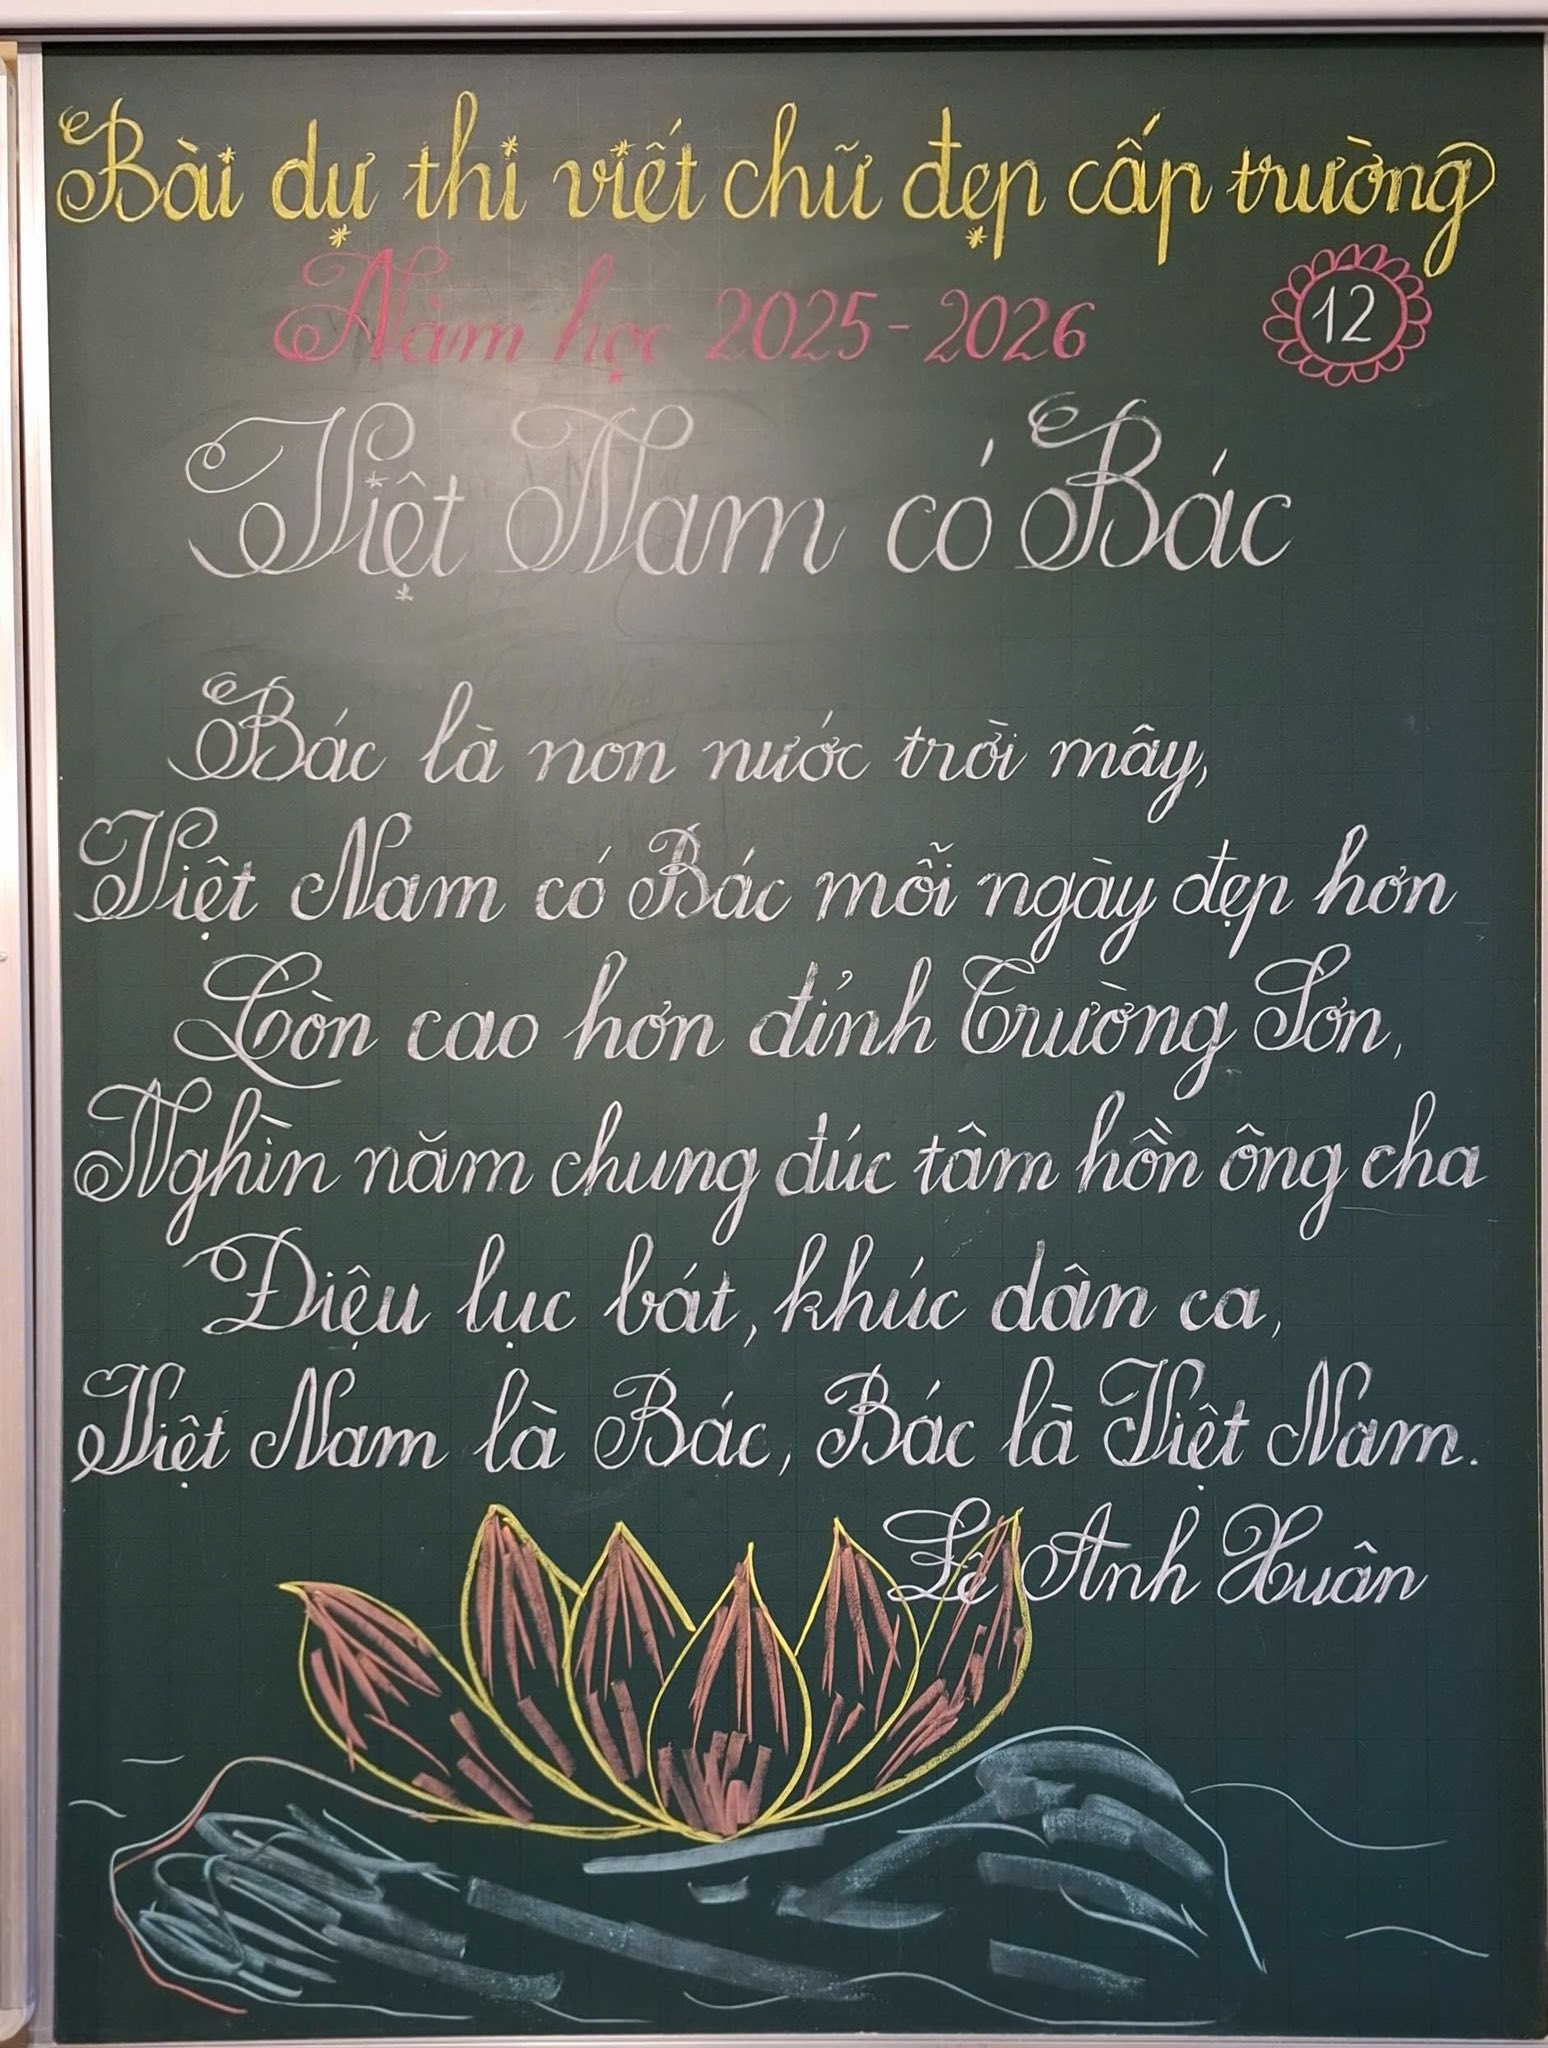 Bài dự thi viết chữ đẹp cấp trường
Năm học 2025-2026
12
Việt Nam có Bác
Bác là non nước trời mây,
Việt Nam có Bác mỗi ngày đẹp hơn
Còn cao hơn đỉnh Trường Sơn,
Nghìn năm chung đúc tâm hồn ông cha
Điệu lục bát, khúc dân ca,
Việt Nam là Bác, Bác là Việt Nam.
Lê Anh Xuân